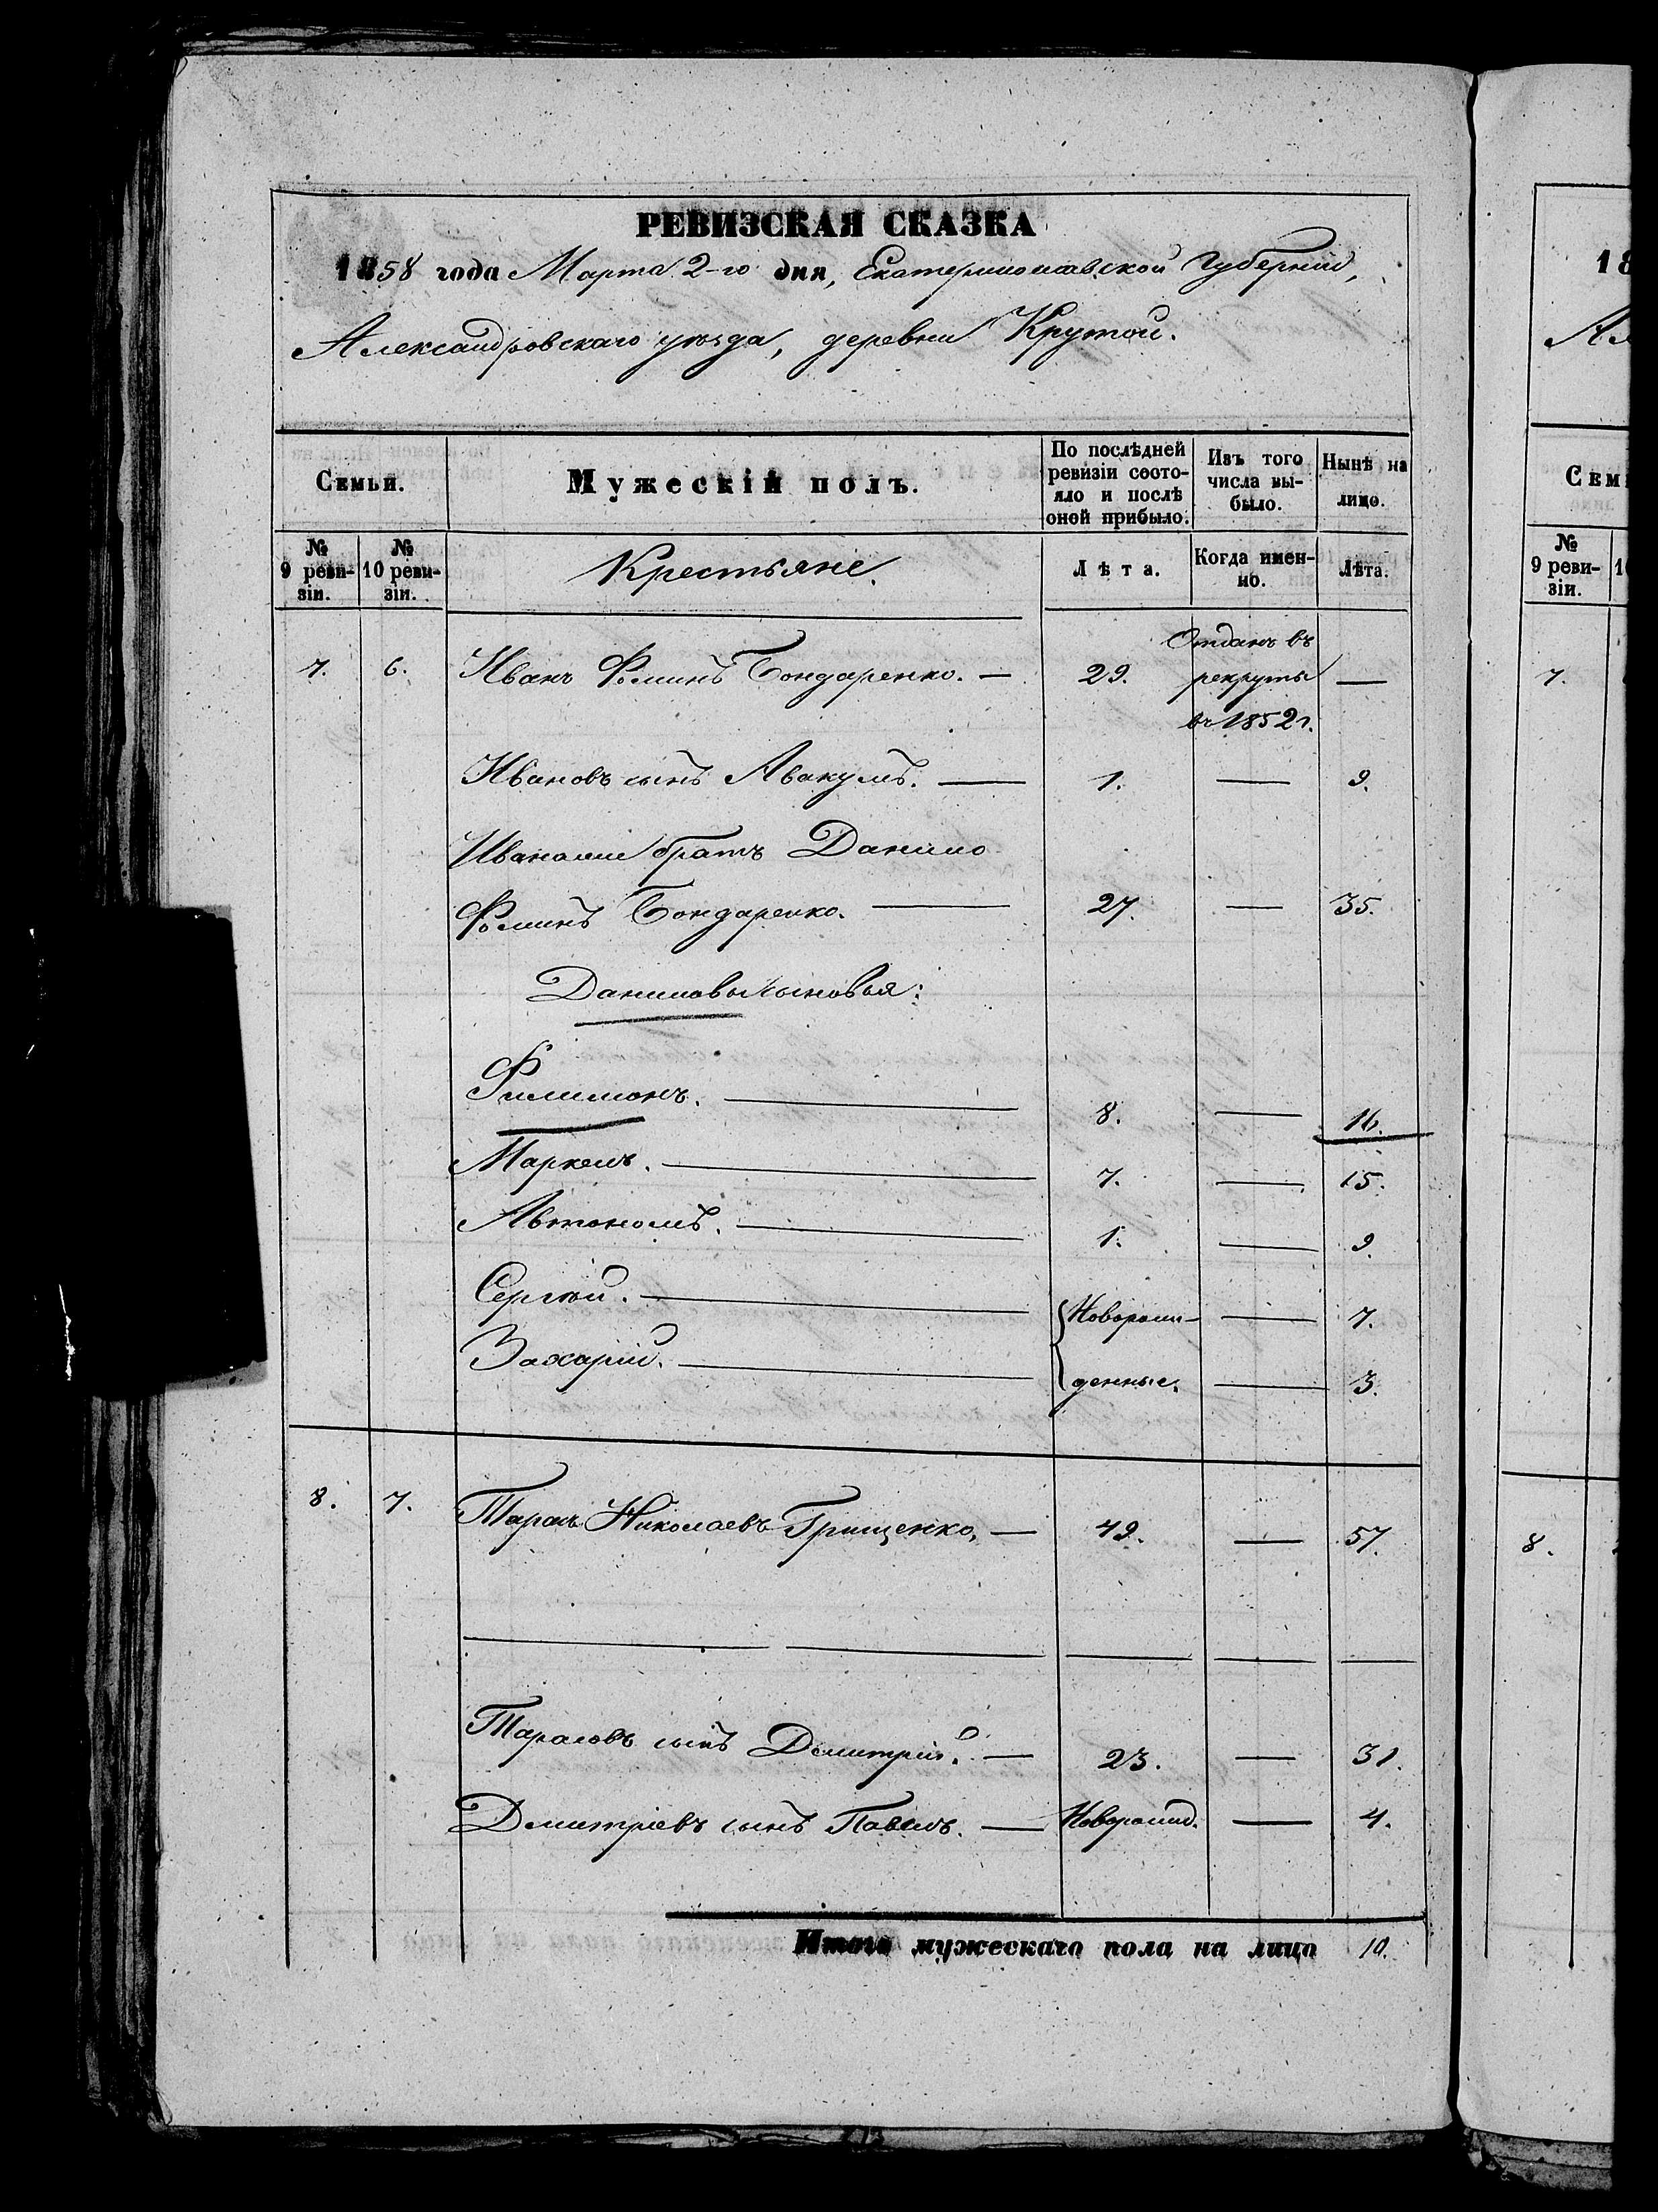 РЕВИЗСКАЯ СКАЗКА
1858 года Марта 2-го дня, Екатеринославской Губерніи,
Александровскаго уѣзда, деревни Крутой.
Семьи. Мужескій полъ. По послѣдней ревизіи состояло и послѣ оной прибыло. Изъ того числа выбыло. Нынѣ на лицо.
№ 9 ревизіи. № 10 ревизіи. Крестьяне. Лѣта. Когда именно. Лѣта.
7. 6. Иванъ Ѳоминъ Бондаренко. — 29. Отданъ въ рекруты въ 1852 г. —
Ивановъ сынъ Авакумъ. — 1. — 9.
Ивановъ братъ Данило
Ѳоминъ Бондаренко. — 27. — 35.
Даниловы сыновья:
Филимонъ. — 8. — 16.
Маркелъ. — 7. — 15.
Автономъ. — 1. — 9.
Сергѣй. —Новорож- — 7.
Захарій. — денные. — 3.
8. 7. Тарасъ Николаевъ Грищенко. — 49. — 57.
Тарасовъ сынъ Дмитрій. — 23. — 31.
Дмитріевъ сынъ Павелъ. — Новорожд. — 4.
Итого мужескаго пола на лицо 10.
18
Сем
№ 9 ревизіи. 1
7.
8.